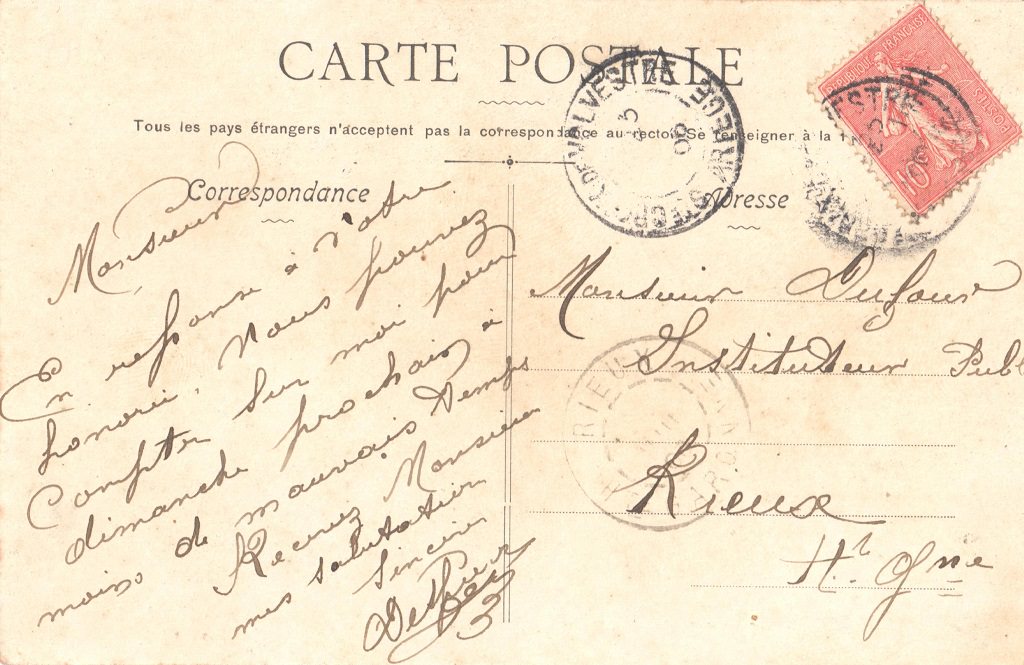 CARTE POSTALE
Tous les pays étrangers n'acceptent pas la correspondance au recto. Se renseigner à la
Correspondance
Monsieur
En reponse à votre
honorée, Vous pouvez
Compter sur moi pour
dimanche prochain à
moins de mauvais temps
Recevez Monsieur
mes salutation
Sincère
Adresse
Monsieur Dufour
Instituteur Publ
Rieux
Hte Gne
REPUBLIQUE FRANÇAISE
POSTES
10
RIEUX